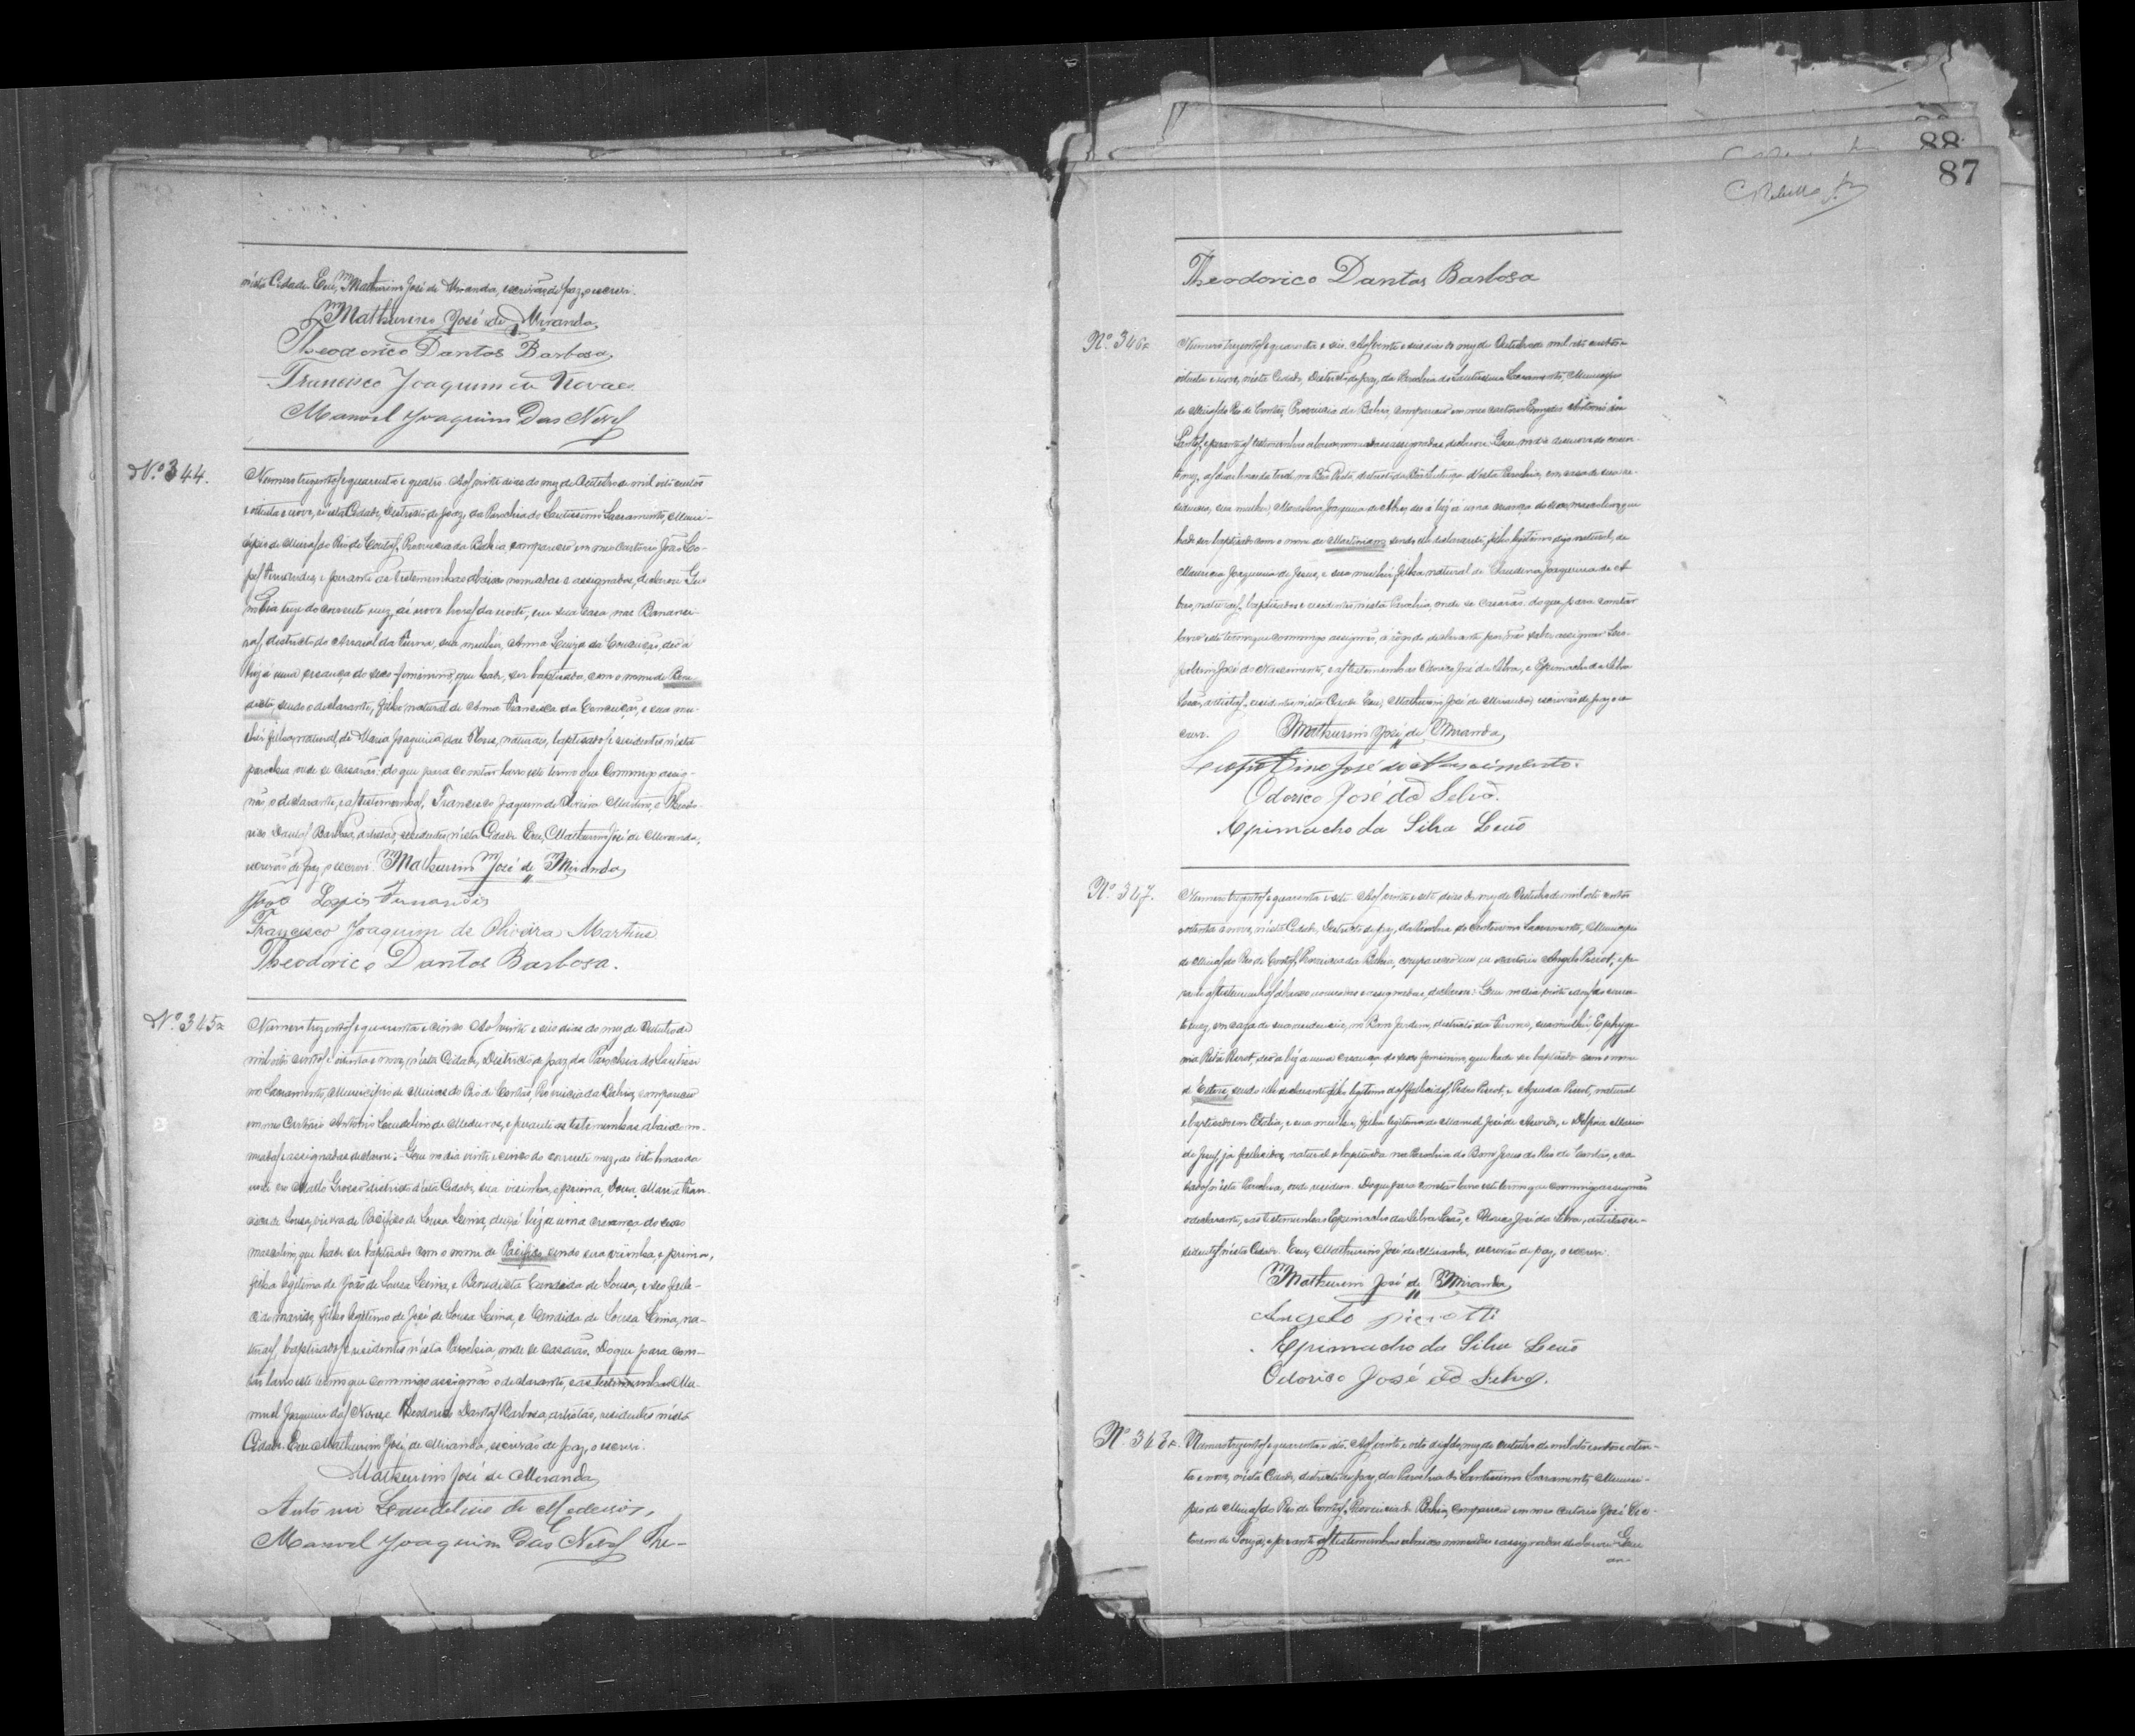 nésta Cidade. Eu, Mathurino José de Miranda, escrivão de paz, o escrevi.
Mathurino José de Miranda
Theodorico Dantas Barbosa
Francisco Joaquim de Novaes
Manoel Joaquim Das Neves
Nº 344.
Numero trezentos e quarenta e quatro. Aos vinte dias do mez de Outubro de mil oito centos
e oitenta e nove, nésta Cidade, Destricto de paz, da Parochia do Santissimo Sacramento, Muni-
cipio de Minas do Rio de Contas, Provincia da Bahia, compareceo em meo Cartorio João Lo-
pes Fernandes, e perante as testemunhas abaixo nomeadas e assignadas, declarou: Que
no dia treze do corrente mez, ás nove horas da noite, em sua casa, nas Bananei-
ras, destricto do Arraial da Furna, sua mulher, Anna Luiza da Conceição, deo á
luz á uma creança do sexo feminino, que hade ser baptisada, com o nome de Bene-
dicta, sendo o declarante, filho natural de Anna Francisca da Conceição, e sua mu-
lher filha natural de Maria Joaquina das Flores, naturaes, baptisados e residentes nésta
parochia onde se casarão: do que para constar lavro este termo que commigo assig-
não, o declarante, e as testemunhas, Francisco Joaquim de Oliveira Martins, e Theodo-
rico Dantas Barbosa, artistas, residentes nésta Cidade. Eu, Mathurino José de Miranda,
escrivão de paz, o escrevi. Mathurino José de Miranda
João Lopis Fernandis
Francisco Joaquim de Oliveira Martins
Theodorico Dantas Barbosa.
Nº 345
Numero trezentos e quarenta e cinco. Aos vinte e seis dias do mez de Outubro de
mil oito centos e oitenta e nove, nésta Cidade, Destricto de paz, da Parochia do Santissi-
mo Sacramento, Municipio de Minas do Rio de Contas, Provincia da Bahia, compareceo
em meo Cartorio Antonio Laudelino de Medeiros, e perante as testemunhas abaixo no-
meadas e assignadas declarou: Que no dia vinte e cinco do corrente mez, as oito horas da
noite no Matto Grosso districto desta Cidade, sua visinha, e prima, Dona Maria Fran-
cisca de Sousa, viuva de Pacifico de Sousa Lima, deu á luz a uma creança do sexo
masculino, que hade ser baptisado com o nome de Pacifico, sendo sua visinha, e prima,
filha legitima de João de Sousa Lima, e Benedicta Candida de Sousa, e seo falle-
cido marido, filho legitimo de José de Sousa Lima, e Candida de Sousa Lima, na-
turaes, baptisados e residentes nésta Parochia, onde se casarão. Do que para cons-
tar lavro este termo que commigo assignão o declarante, e as testemunhas Ma-
noel Joaquim das Neves, e Theodorico Dantas Barbosa, artistas, residentes nésta
Cidade. Eu Mathurino José de Miranda, escrivão de paz, o escrevi.
Mathurino José de Miranda
Antonio Laudelino de Medeiros,
Manoel Joaquim Das Neves The-
88
87
Theodorico Dantas Barbosa
Nº 346
Numero trezentos e quarenta e seis. Aos vinte e seis dias do mez de Outubro de mil oito centos e
oitenta e nove, nésta Cidade, Destricto de paz, da Parochia do Santissimo Sacramento, Municipio
de Minas do Rio de Contas, Provincia da Bahia, compareceo em meo cartorio Antonio dos
Santos, e perante as testemunhas abaixo nomeadas e assignadas, declarou: Que no dia desenove do corren-
te mez, as duas horas da tarde, no Rio Preto, districto d'esta Parochia, em casa de sua re-
sidencia, sua mulher, Joaquina de Abreu, deo á luz á uma creança do sexo masculino, que
hade ser baptisado com o nome de Martiniano, sendo elle declarante, filho legitimo digo natural, de
Joaquina de Jesus, e sua mulher, filha natural de Claudina Joaquina de A-
breu, naturaes, baptisados e residentes nésta Parochia, onde se casarão. do que para constar
lavro este termo que commigo assignão, á rogo do declarante por não saber assignar Leo-
poldino José do Nascimento, e as testemunhas Odorico José da Silva, e Epimacho da Silva
Leão, artistas, residentes nésta Cidade. Eu, Mathurino José de Miranda, escrivão de paz o es-
crevi. Mathurino José de Miranda
Leopoldino José do Nascimento.
Odorico José da Selva.
Epimacho da Silva Leão
Nº 347.
Numero trezentos e quarenta e sete. Aos vinte e sete dias do mez de Outubro de mil oito centos
oitenta e nove, nésta Cidade, Destricto de paz, da Parochia do Santissimo Sacramento, Municipio
de Minas do Rio de Contas, Provincia da Bahia, compareceo em meu cartorio Angelo Pierot, e pe-
rante as testemunhas abaixo nomeadas e assignadas, declarou: Que no dia vinte e dous do corren-
te mez, em caza de sua residencia, no Bom Jardim, districto da Furna, sua mulher, Ephyge-
nia Rita Pierot, deo á luz á uma creança do sexo feminino, que hade ser baptisada com o nome
de Ester, sendo elle declarante filho legitimo dos fallecidos, Pedro Pierot, e Pierot, natural
e baptisado em Etalia, e sua mulher, filha legitima de Manoel José de Azevedo, e Delfina Maria
de Jesus, já fallecidos, natural e baptisada na Parochia do Bom Jesus do Rio de Contas, e ca-
sados nésta Parochia, onde residem. Do que para constar lavro este termo que commigo assignão
o declarante, e as testemunhas Epimacho da Silva Leão, e Odorico José da Silva, artistas re-
sidentes nésta Cidade. Eu, Mathurino José de Miranda, escrivão de paz, o escrevi.
Mathurino José de Miranda
Angelo Pierotti
Epimacho da Silva Leão
Odorico José da Selva.
Nº 348
Numero trezentos e quarenta e oito. Aos vinte e oito dias do mez de Outubro de mil oito centos e oiten-
ta e nove, nésta Cidade, destricto de paz, da Parochia do Santissimo Sacramento, Munici-
pio de Minas do Rio de Contas, Provincia da Bahia, compareceo em meo cartorio José
de Souza, e perante as testemunhas abaixo nomeadas e assignadas declarou: Que